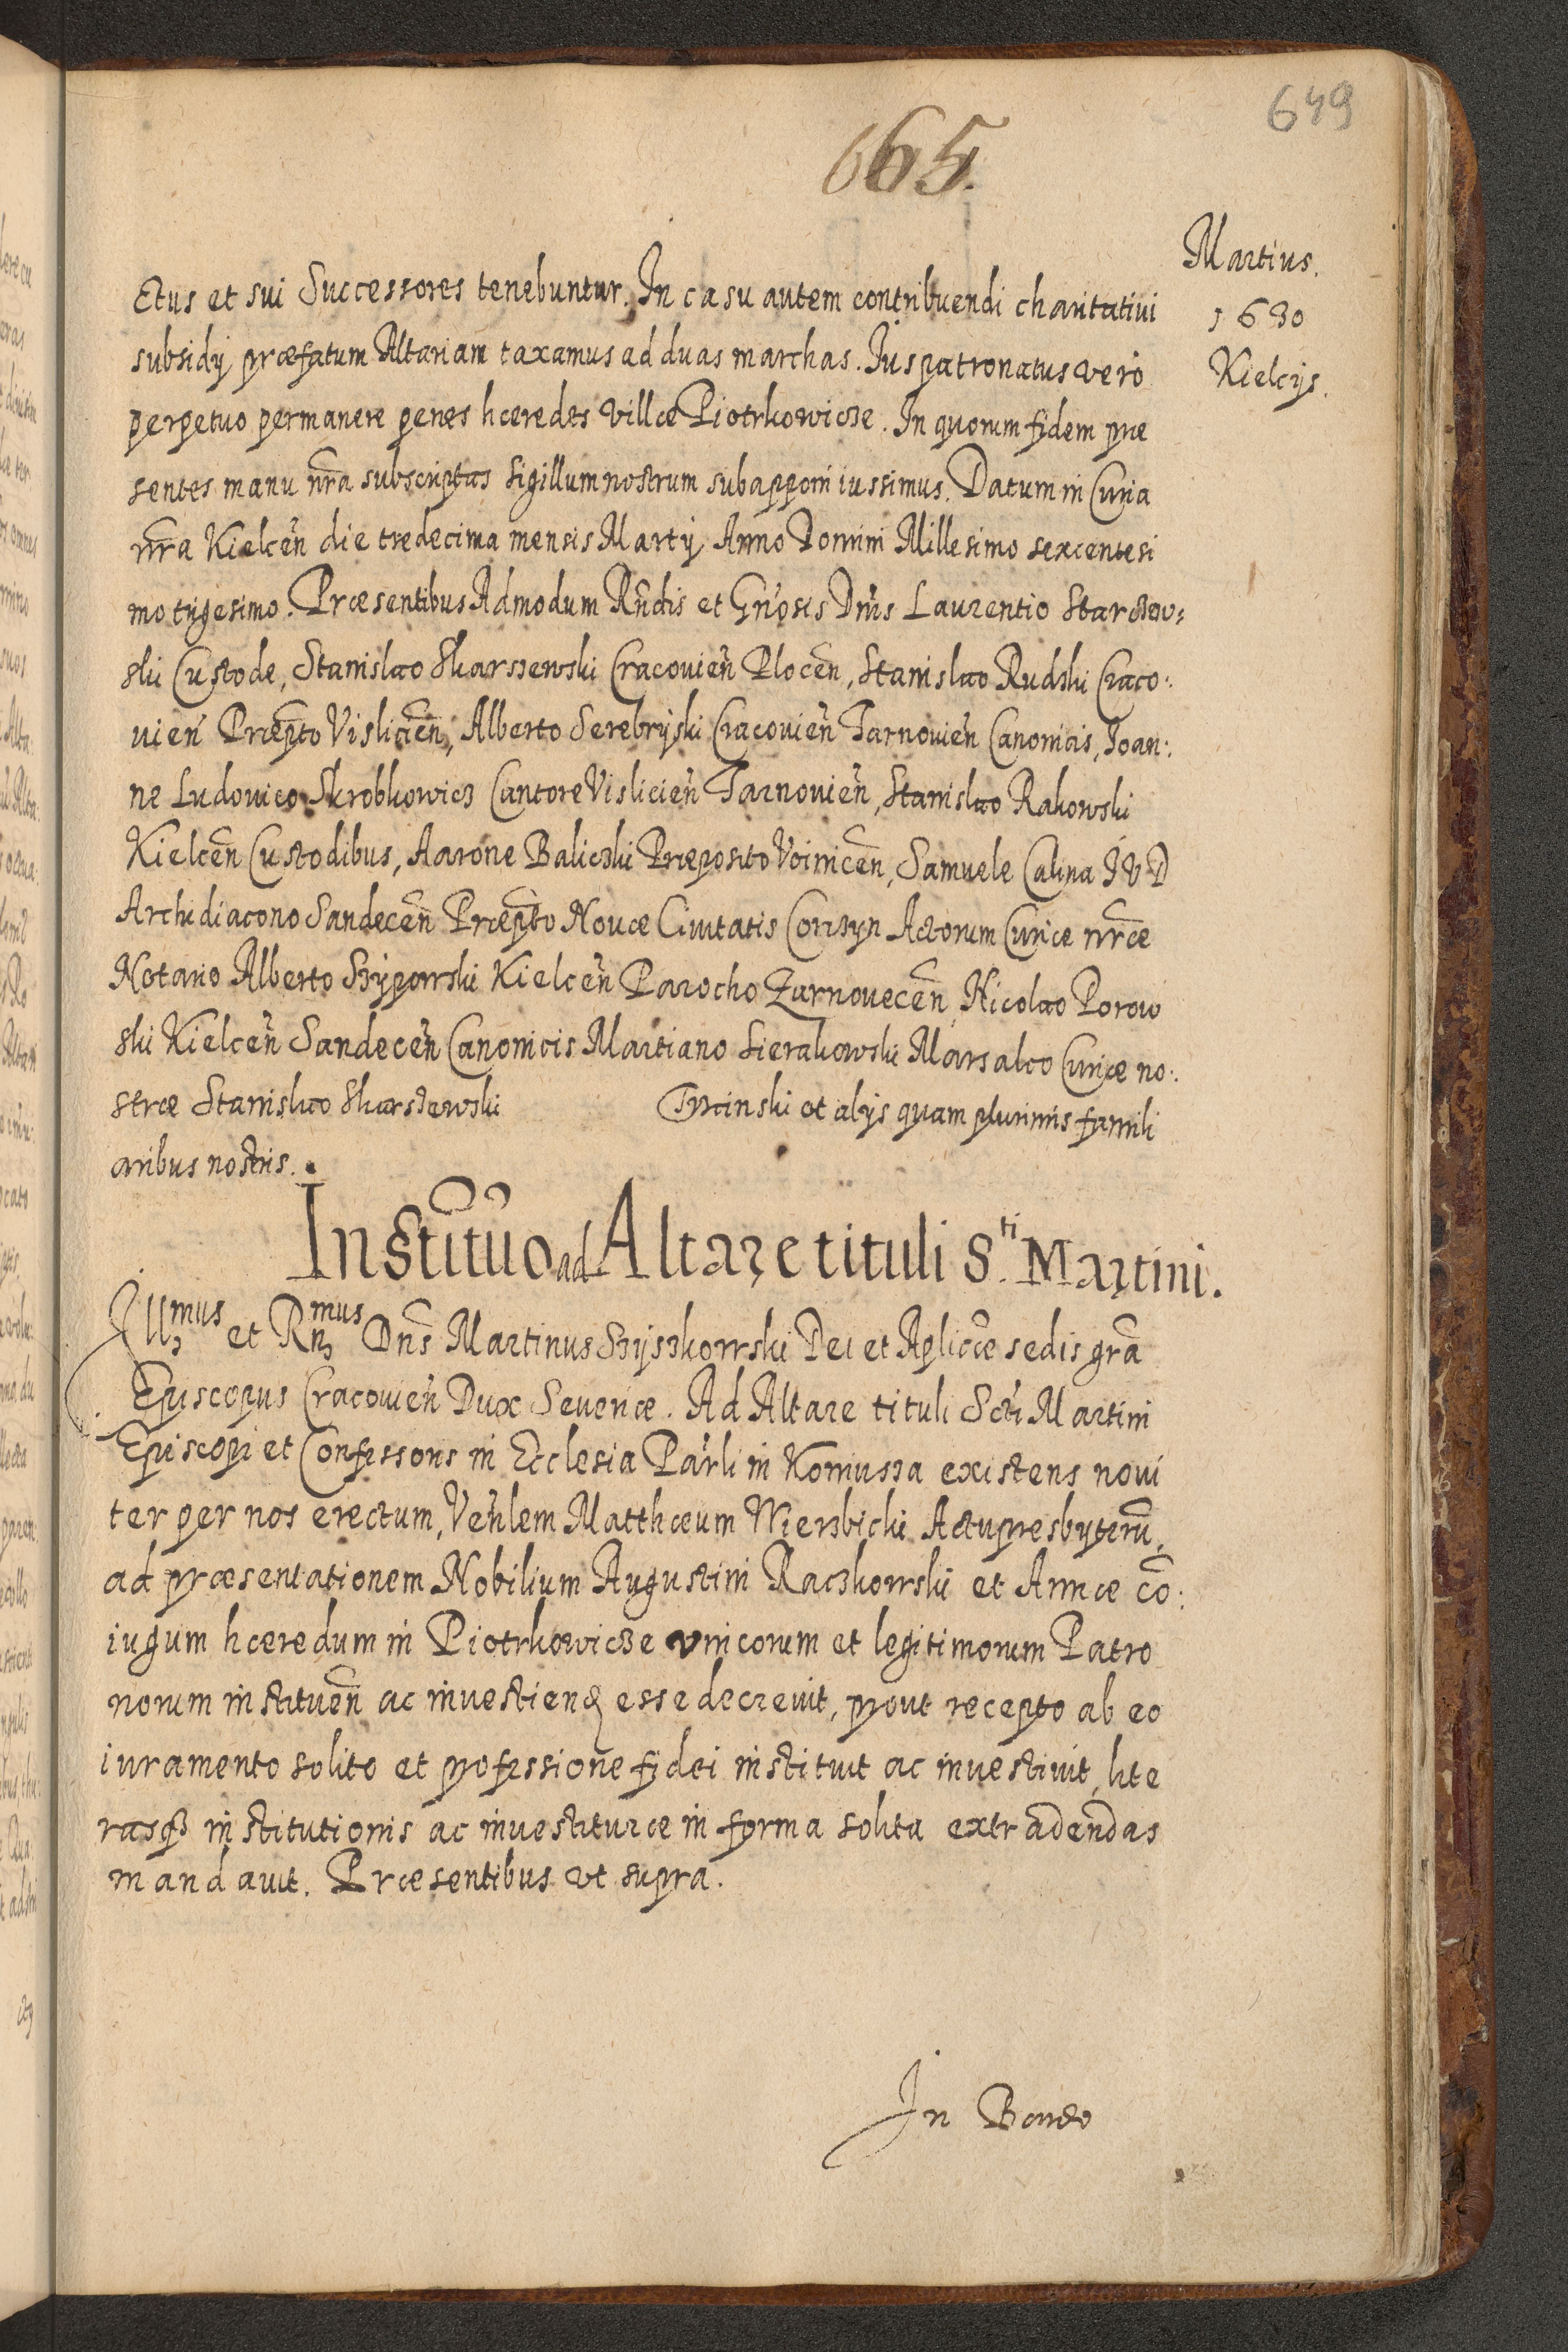 649
665.
Martius.
1630
Kielcijs.
ctus et sui Successores tenebuntur. In casu autem contribuendi charitatiui
subsidij præfatum Altariam taxamus ad duas marchas. Ius patronatus vero
perpetuo permanere penes hæredes villæ Piotrkowicze. In quorum fidem præ
sentes manu nr̃a subscriptas Sigillum nostrum subapponi iussimus. Datum in Curia
nr̃a Kielceñ die tredecima mensis Martij Anno Domini Millesimo sexcentesi
mo trigesimo. Præsentibus Admodum Rñdis et Gñosis Dñis Laurentio Starczew=
ski Custode, Stanislao Skarszewski Cracouieñ Ploceñ, Stanislao Rudzki Craco:
uieñ Præpto Visliciẽn, Alberto Serebryski Cracouieñ Tarnouieñ Canonicis, Joan:
ne Ludouico Skrobkowicz Cantore Vislicieñ Tarnouieñ, Stanislao Rakowski
Kielceñ Custodibus, Aarone Baliczki Præposito Voinicẽn, Samuele Calina I V D
Archidiacono Sandeceñ Præp̃to Nouæ Ciuitatis Corczyn Actorum Curiæ nr̃æ
Notario Alberto Szypowski Kielceñ Parocho Zarnoueceñ, Nicolao Porow
ski Kielceñ Sandeceñ Canonicis Martiano Sierakowski Marsalco Curiæ no:
stræ Stanislao Skarszewski Trzcinski et alijs quam plurimis famili
aribus nostris.
Institutio ad Altare tituli S.ti Martini.
Illmus et Rnmus Dñs Martinus Szyszkowski Dei et Aplicæ sedis grã
Episcopus Cracouieñ Dux Seueriæ. Ad Altare tituli Scti Martini
Episcopi et Confessoris in Ecclesia Pãrli in Koniusza existens noui
ter per nos erectum, Veñlem Matthæum Wierzbicki Actupresbyterũ,
ad præsentationem Nobilium Augustini Raczkowski et Annæ cõ:
iugum hæredum in Piotrkowicze vnicorum et legitimorum Patro
norum instituẽn ac inuestienḍ esse decreuit, prout recepto ab eo
iuramento solito et professione fidei instituit ac inuestiuit, lite
rasq̃ institutionis ac inuestituræ in forma solita extradendas
mandauit. Præsentibus vt supra.
In